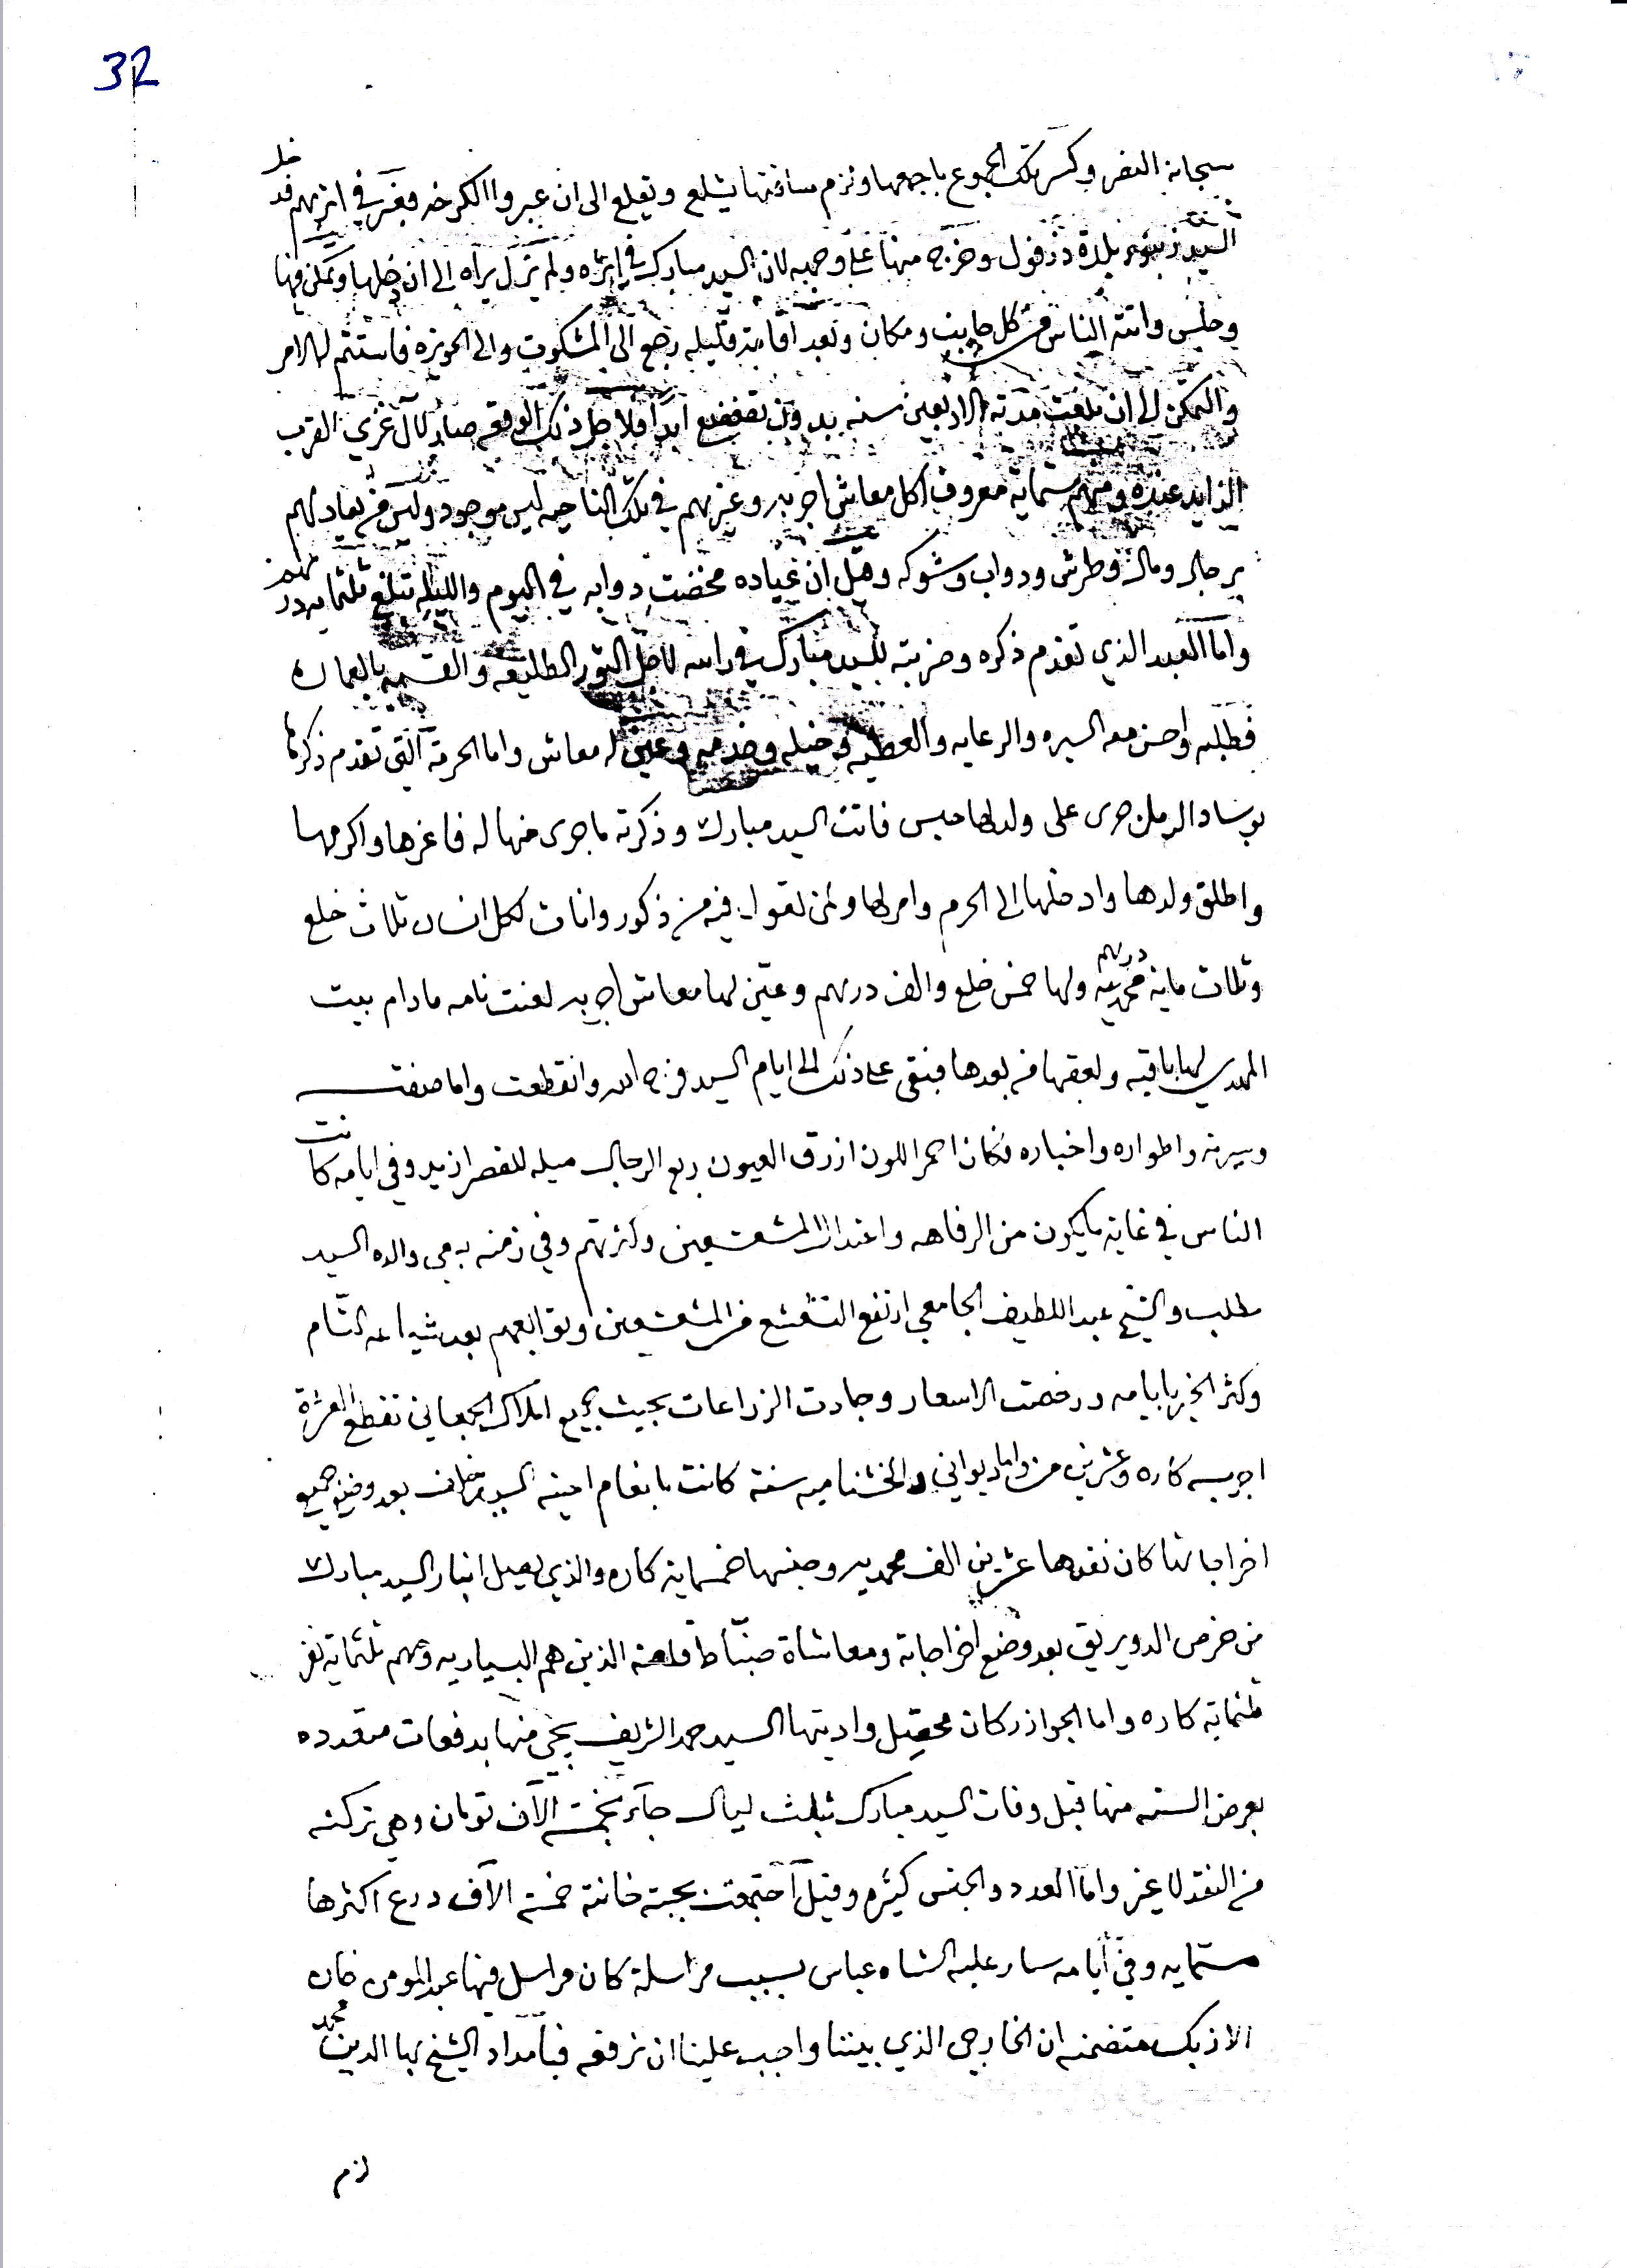 32
سبحانه النصر وكسر تلك الجموع باجمعها ولزم ساقتها يشلع ويقلع الى ان عبروا الكرخه فبقى في اثرهم فدخل
السيد زنبور بلدة دزفول وخرج منها على وجهه لان السيد مبارك في اثره ولم يزل يراه الى ان دخلها وتمكن فيها
وجلس واتته الناس من كل جانب ومكان وبعد اقامة قليله رجع الى المشكوك والى الحويزه فاستتم له الامر
والتمكن الى ان بلغت مدته الاربعين سنه بدون تضعضع ابدا فلاجل ذلك الوقعه صار لآل غزي القرب
الزايد عنده ومنهم ستماية معروف اكل معاش اجريه وغيرهم في تلك الناحيه ليس موجود وليس من يعادلهم
برجال ومال وطرش ودواب وشوكه وقيل ان غياده مخضت دوابه في اليوم والليله تبلغ ثلثمايه
واما العبد الذي تقدم ذكره وضربته للسيد مبارك في راسه لاجل الثور الطليعه والقسمه بالعمارة
فطلبه واحسن معه السيره والرعايه والعطيه من خيله وخدمه وعين له معاش واما الحرمة التي تقدم ذكرها
بوساد الرمل جرى على ولدها حبس فاتت السيد مبارك وذكرته ما جرى منها له فاعزها واكرمها
واطلق ولدها وادخلها الى الحرم وامر لها ولمن تقول فيه من ذكور واناث لكل انسان ثلاث خلع
وثلاث ماية محمديه درهم ولها خمس خلع والف درهم وعين لها معاش اجريه لعنت نامه مادام بيت
المهدي لها باقيه ولعقبها من بعدها فبقى على ذلك الى ايام السيد فرج الله وانقطعت واما صفته
وسيرته واطواره واخباره فكان احمر اللون ازرق العيون ربع الرجال ميله للقصر ازيد وفي ايامه كانت
الناس في غاية ما يكون من الرفاهه واعتدال المشعشعين وكثرتهم وفي زمنه بيمي والده السيد
مطلب والشيخ عبد اللطيف الجامعي ارتفع التشعشع من المشعشعين وتوابعهم بعد شياعه التام
وكثر الخير بايامه ورخصت الاسعار وجادت الزراعات بحيث جميع املاك الجعاني تقطع العشرة
اجريه كاره وعشرين من واما ديواني والخشناميه سنة كانت بانعام اخيه السيد خلف بعد وضع جميع
اخراجاتها كان نقدها عشرين الف محمديه وجنسها خمسماية كاره والذي يصل انبار السيد مبارك
من خرص الدويريق بعد وضع اخراجاته ومعاشاة ضباط قلعته الذين هم البسياريه وهم ثلثماية نفر
ثلثماية كاره واما الجوازر كان محصل واديتها السيد حمد الشريف يجي منها بدفعات متعدده
بعرض السنه منها قبل وفات السيد مبارك بثلث ليال جآء بخمسة آلاف تومان وهي تركته
من النقد لا غير واما العدد والجنس كثيره وقيل اجتمعت بجبة خانته خمسة الآف درع اكثرها
ستمايه وفي أيامه سار عليه الشاه عباس بسبب مراسلة كان مراسل فيها عبد المومن خان
الازبك متضمنه ان الخارجي الذي بيننا واجب علينا ان نرفعه فبامداد الشيخ بهاالدين محمد
لزم